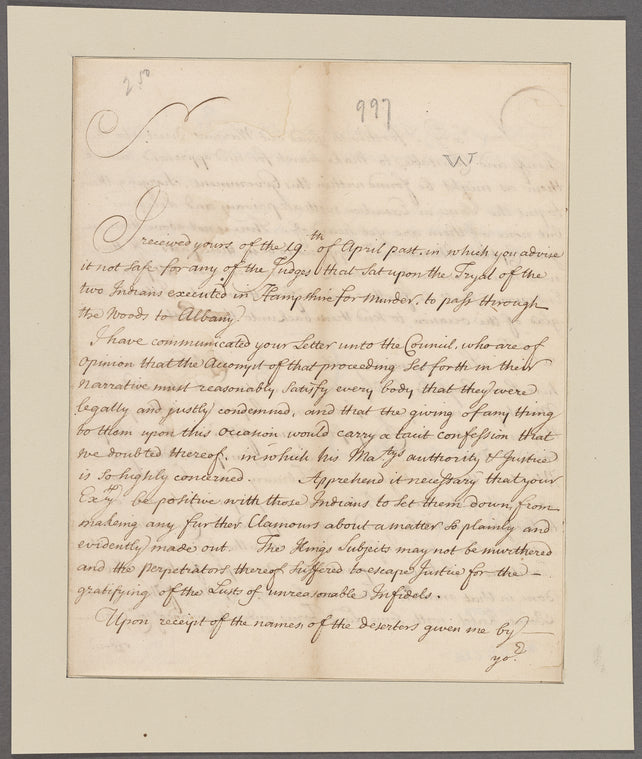 2.50
997
W.
Sr.
I received yours of the 19.th of April past, in which you advise
it not safe for any of the Judges that Sat upon the Tryal of the
two Indians executed in Hampshire for Murder, to pass through
the Woods to Albany.
I have communicated your Letter unto the Council, who are of
opinion that the Accompt of that proceeding Set forth in their
Narrative must reasonably Satisfy every body that they were
legally and justly condemned, and that the giving of any thing
to them upon this occasion would carry a tacit confession that
we doubted thereof, in which his Matys authority & Justice
is So highly concerned. Apprehend it necessary that your
Excy be positive with those Indians to Set them down from
making any further Clamours about a matter So plainly and
evidently made out. The Kings Subjects may not be murthered
and the perpetrators thereof Suffered to escape Justice for the
gratifying of the Lusts of unreasonable Infidels.
Upon receipt of the names of the deserters given me by
yor.